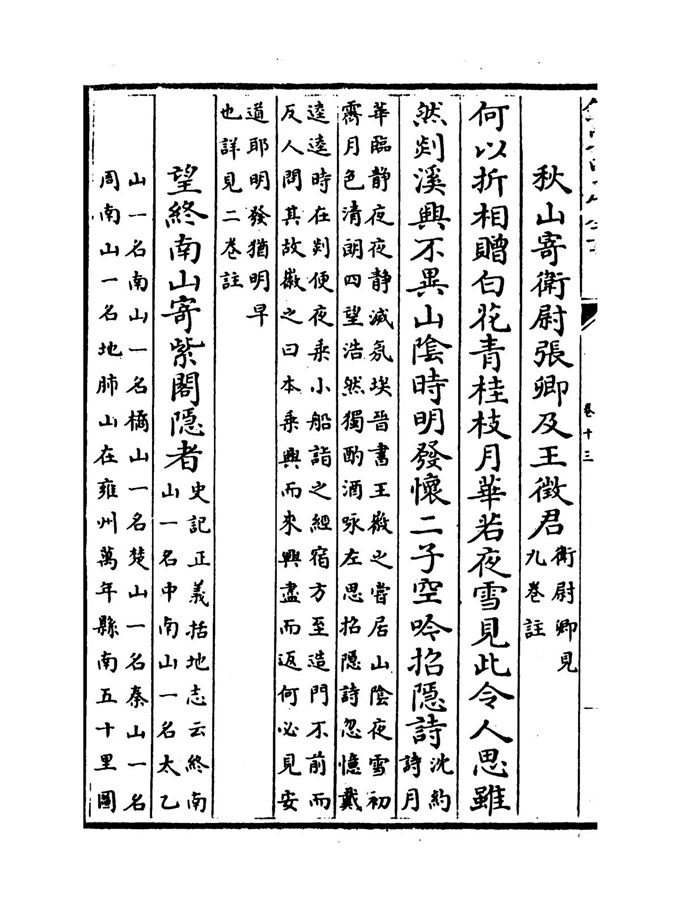 卷十三
秋山寄衛尉張卿及王徵君衛尉卿見
九卷註
何以折相贈白花青桂枝月華若夜雪見此令人思雖
然剡溪興不異山陰時明發懷二子空吟招隱詩沈約
詩月
華臨靜夜夜靜滅氛埃晉書王徽之嘗居山陰夜雪初
霽月色清朗四望浩然獨酌酒咏左思招隱詩忽憶戴
逵逵時在剡便夜乘小船詣之經宿方至造門不前而
反人問其故徽之曰本乘興而來興盡而返何必見安
道耶明發猶明早
也詳見二卷註
望終南山寄紫閣隱者史記正義括地志云終南
山一名中南山一名太乙
山一名南山一名橘山一名楚山一名秦山一名
周南山一名地肺山在雍州萬年縣南五十里圖